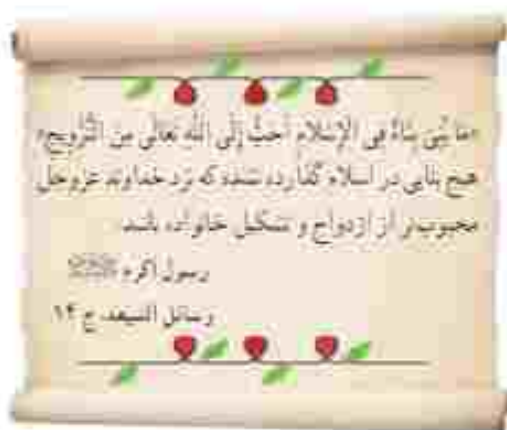 «ما بُنِیَ بِنَاءٌ فِی الإِسْلامِ أَحَبُّ إِلَی اللهِ تَعَالَی مِنَ التَّزْوِیجِ»
هیچ بنایی در اسلام گذارده نشده که نزد خداوند عزوجل
محبوب‌تر از ازدواج و تشکیل خانواده باشد
رسول اکرم
وسائل الشیعه، ج ۱۴